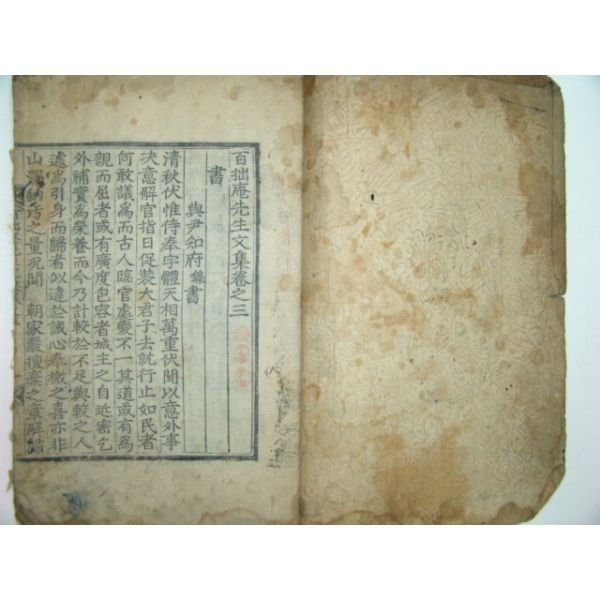 百拙庵先生文集卷之三
書
與尹知府集書
清秋伏惟侍奉字體天相萬重伏聞以意外事
决意解官指日促裝大君子去就行止如民者
何敢議爲而古人臨官處變不一其道或有爲
親而屈者或有廣度包容者城主之自近密乞
外補實爲榮養而今乃計較於不足與較之人
遽爲引身而歸者似違於誠心奉檄之喜亦非
山藪納污之量况聞 朝家嚴擅棄之章解